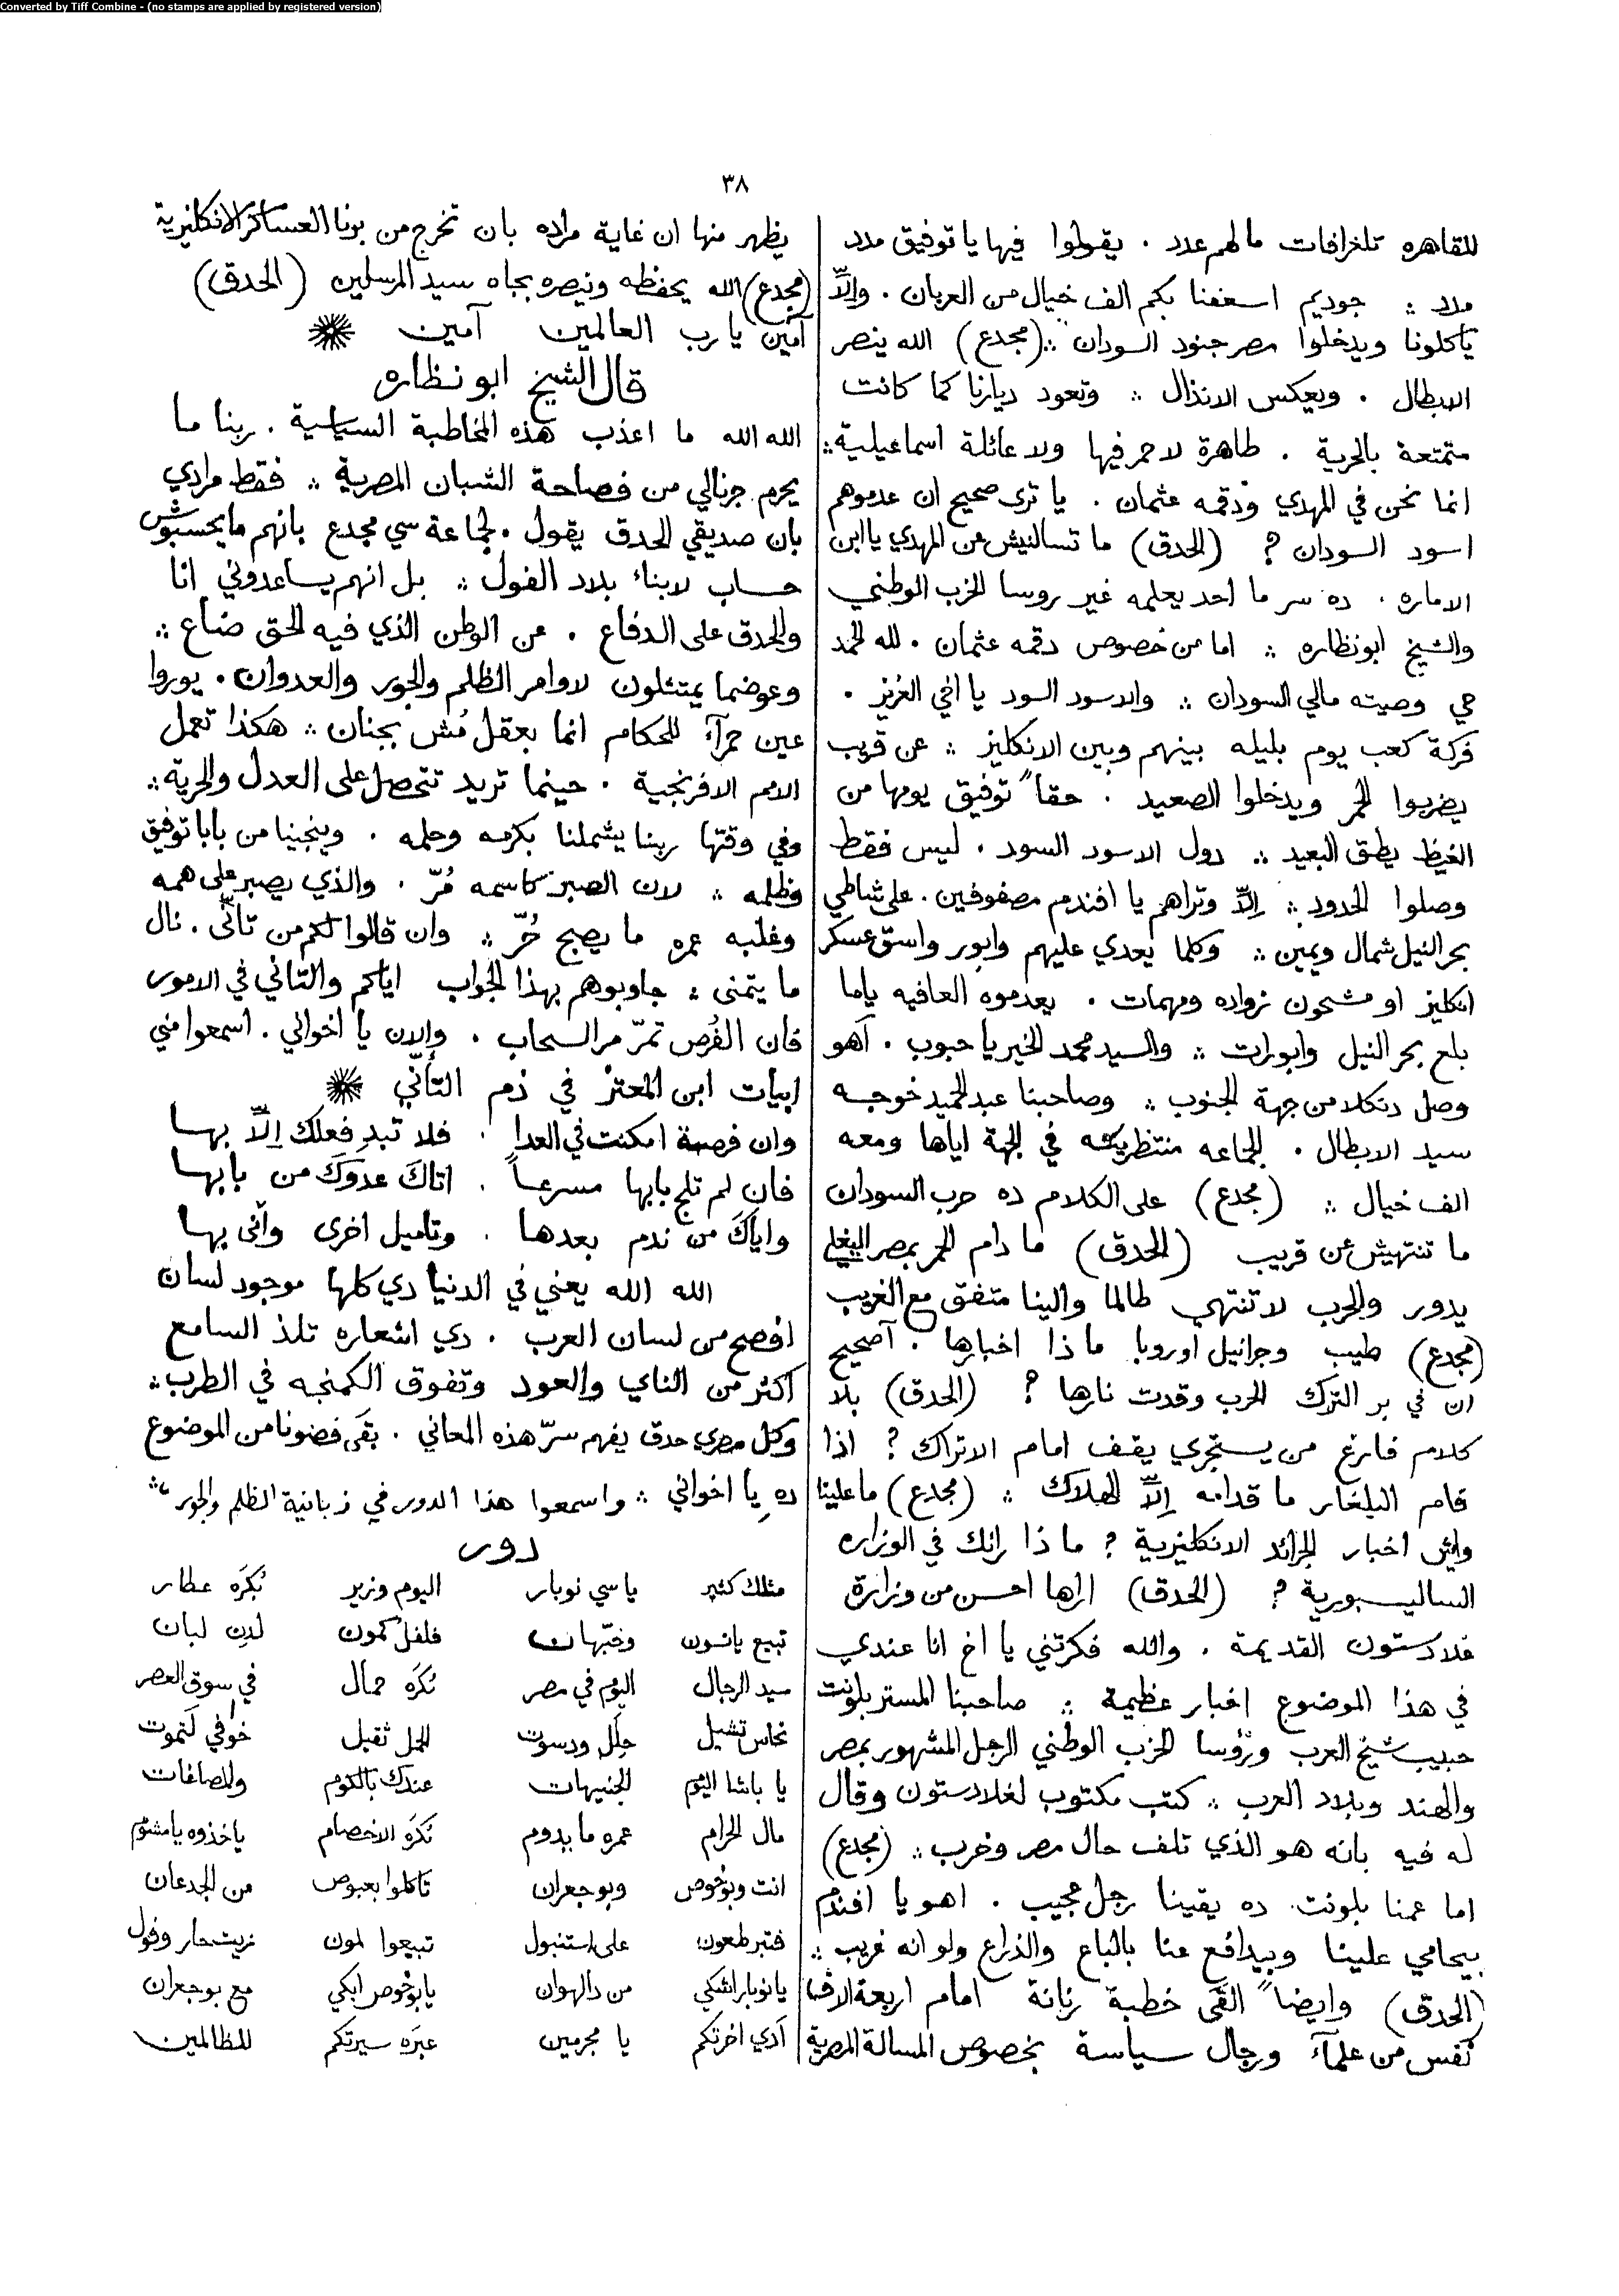 Converted by Tiff Combine - (no stamps are applied by registered version)
٣٨
للقاهره تلغرافات مالهم عدد . يقولوا فيها يا توفيق مدد
مدد ؞ جوديم اسعفنا بكم الف خيال من العربان . والاّ
ياكلونا ويدخلوا مصر جنود السودان ؞ (مجدع) الله ينصر
الابطال . ويعكس الانذال ؞ وتعود ديارنا كما كانت
متمتعة بالحرية . طاهرة لاحمر فيها ولا عائلة اسماعيلية ؞
انما نحن في المهدي ودقمه عثمان . يا ترى صحيح ان عدموهم
اسود السودان ? (الحدق) ما تسالنيش عن المهدي يا ابن
الاماره . ده سر ما احد يعلمه غير روسا الحزب الوطني
والشيخ ابو نظاره ؞ اما من خصوص دقمه عثمان . لله الحمد
حي وصيته مالي السودان ؞ والاسود السود يا اخي العزيز .
فركة كعب يوم بليله بينهم وبين الانكليز ؞ عن قريب
يضربوا الحمر ويدخلوا الصعيد . حقاً توفيق يومها من
الغيظ يطق البعيد ؞ دول الاسود السود . ليس فقط
وصلوا الحدود ؞ الاّ وتراهم يا افندم مصفوفين . على شاطي
بحر النيل شمال ويمين ؞ وكلما يعدي عليهم وابور واسق عسكر
انكليز او مشحون زواده ومهمات . يعدموه العافيه ياما
بلع بحر النيل وابورات ؞ والسيد محمد الخير يا حبوب . آهو
وصل دنكلا من جهة الجنوب ؞ وصاحبنا عبد الحميد خوجه
سيد الابطال . الجماعه منتظرينه في الجهة اياها ومعه
الف خيال ؞ (مجدع) على الكلام ده حرب السودان
ما تنتهيش عن قريب (الحدق) ما دام الحمر بمصر البغلي
يدور والحرب لا تنتهي طالما والينا متفق مع الغريب
(مجدع) طيب وجرانيل اوروبا ماذا اخبارها . آصحيح
ان في بر الترك الحرب وقدت نارها ? (الحدق) بلا
كلام فارغ من يستجري يقف امام الاتراك ? اذا
قام البلغار ما قدامه الاّ الهلاك ؞ (مجدع) ما علينا
وايش اخبار الجرائد الانكليزية ? ماذا رائك في الوزاره
الساليسبورية ? (الحدق) اراها احسن من وزارة
غلادستون القديمة . والله فكرتني يا اخ انا عندي
في هذا الموضوع اخبار عظيمة ؞ صاحبنا المستر بلونت
حبيب شيخ العرب ورؤسا الحزب الوطني الرجل المشهور بمصر
والهند وبلاد العرب ؞ كتب مكتوب لغلادستون وقال
له فيه بانه هو الذي تلف حال مصر وخرب ؞ (مجدع)
اما عمنا بلونت ده يقينا رجل عجيب . اهو يا افندم
بيحامي علينا وبيدافع عنا بالباع والذراع ولو انه غريب ؞
(الحدق) وايضاً القى خطبة رنانة امام اربعة الاف
نفس من علمآء ورجال سياسة بخصوص المسالة المصرية
يظهر منها ان غاية مراده بان تخرج من بونا العساكر الانكليزية
(مجدع) الله يحفظه وينصره بجاه سيد المرسلين (الحدق)
آمين يا رب العالمين آمين
قال الشيخ ابو نظاره
الله الله ما اعذب هذه المخاطبة السياسية . ربنا ما
يحرم جرنالي من فصاحة الشبان المصرية ؞ فقط مرادي
بان صديقي الحدق يقول . لجماعة سي مجدع بانهم ما يحسبوش
حساب لابناء بلاد الفول ؞ بل انهم يساعدوني انا
والحدق على الدفاع . عن الوطن الذي فيه الحق ضاع ؞
وعوضما يمتثلون لاوامر الظلم والجور والعدوان . يوروا
عين حمرآء للحكام انما بعقل مُش بجنان ؞ هكذا تعمل
الامم الافرنجية . حينما تريد تتحصل على العدل والحرية ؞
وفي وقتها ربنا يشملنا بكرمه وحلمه . وينجينا من بابا توفيق
وظلمه ؞ لان الصبر كاسمه مُرّ . والذي يصبر على همه
وغلبه عمره ما يصبح حُرّ ؞ وان قالوا لكم من تانّى . نال
ما يتمنى ؞ جاوبوهم بهذا الجواب اياكم والتاني في الامور
فان الفُرص تمرّ مر السحاب . والان يا اخواني . اسمعوا مني
ابيات ابن المعتز في ذم التأنّي
وان فرصة امكنت في العدا . فلا تبدِ فعلك الاّ بها
فان لم تلج بابها مسرعاً . اتاكَ عدوكَ من بابها
واياكَ من ندم بعدها . وتاميل اخرى وأنى بها
الله الله يعني في الدنيا دي كلها موجود لسان
افصح من لسان العرب . دي اشعاره تلذ السامع
اكثر من الناي والعود وتفوق الكمنجه في الطرب ؞
وكل مصري حدق يفهم سرّ هذه المعاني . بقى فضونا من الموضوع
ده يا اخواني ؞ واسمعوا هذا الدور في زبانية الظلم والجور ؞
دور
مثلك كثير يا سي نوبار اليوم وزير بُكرَه عطار
تبيع يانسون وحبّهان فلفل كمون لدن لبان
سيد الرجال اليوم في مصر بُكرَه حمال في سوق العصر
نحاس تشيل حلل ودسوت الحمل ثقيل خوافي لَتموت
يا باشا اليوم الجنيهات عندك بالكوم والمصاغات
مال الحرام عمره ما يدوم بُكرَه الاخصام ياخذوه يا مشئوم
انت وبوخوص وبوجعران تاكلوا بعبوص من الجدعان
على استنبول تبيعوا لمون زيت حار وفول
يا نوبار اشكي من دالهوان يا بوخوص ابكي مع بوجعران
آدي اخرتكم يا مجرمين عبَره سيرتكم للظالمين